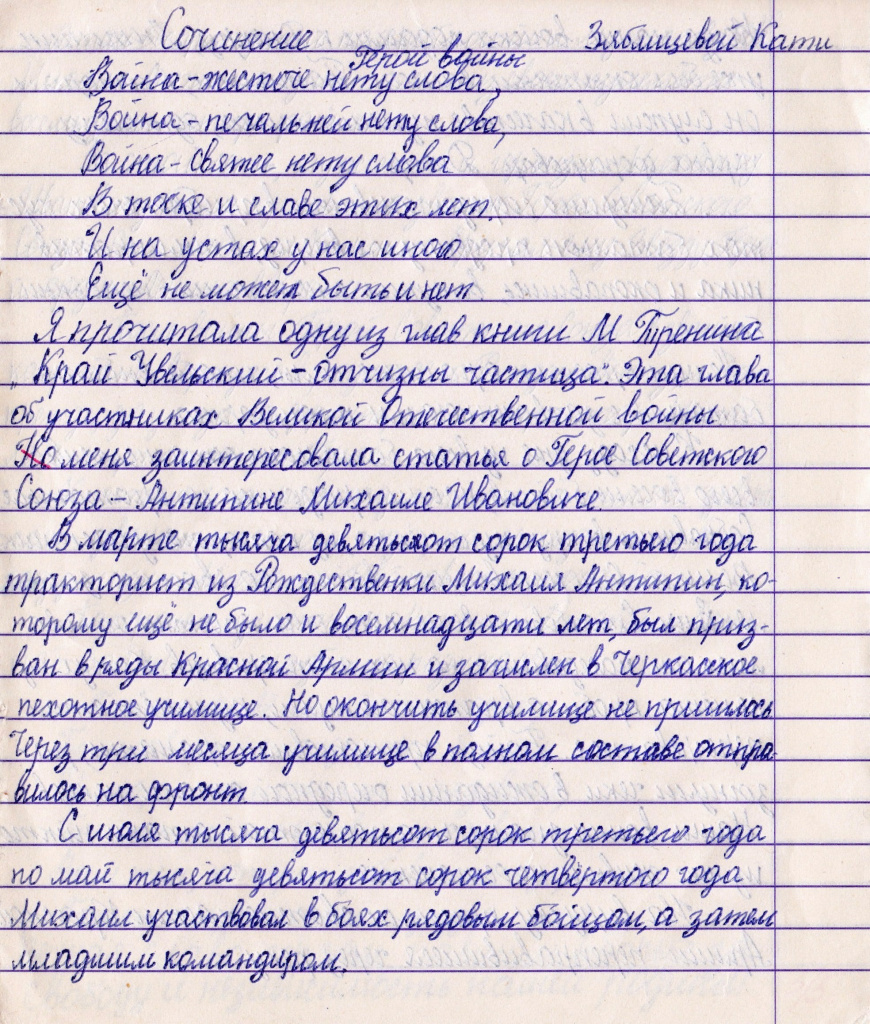 Сочинение Зяблицевой Кати
Герой войны
Война - жесточе нету слова,
Война - печальней нету слова,
Война - святее нету слова
В тоске и славе этих лет.
И на устах у нас иного
Ещё не может быть и нет
Я прочитала одну из глав книги М Тренина
„Край Увельский - отчизны частица". Эта глава
об участниках Великой Отечественной войны
Но меня заинтересовала статья о Герое Советского
Союза - Антипине Михаиле Ивановиче.
В марте тысяча девятьсот сорок третьего года
тракторист из Рждественки Михаил Антипин, ко-
торому ещё не было и восемнадцати лет, был приз-
ван в ряды Красной Армии и зачислен в Черкасское
пехотное училище. Но окончить училище не пришлось
Через три месяца училище в полном составе отпра
вилось на фронт
С июля тысяча девятьсот сорок третьего года
по май тысяча девятьсот сорок четвёртого года
Михаил участвовал в боях рядовым бойцом, а затем
младшим командиром.